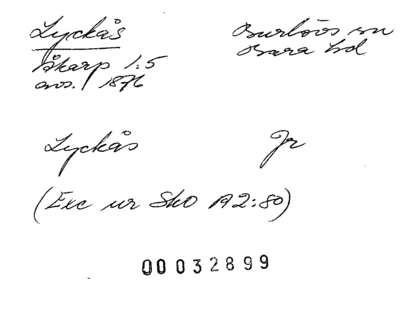 Lyckås Burlövs sn
Åkarp 1:5 Bara hd
avs. 1876
Lyckås Jr
(Exc ur Sko A2:80)
00032899